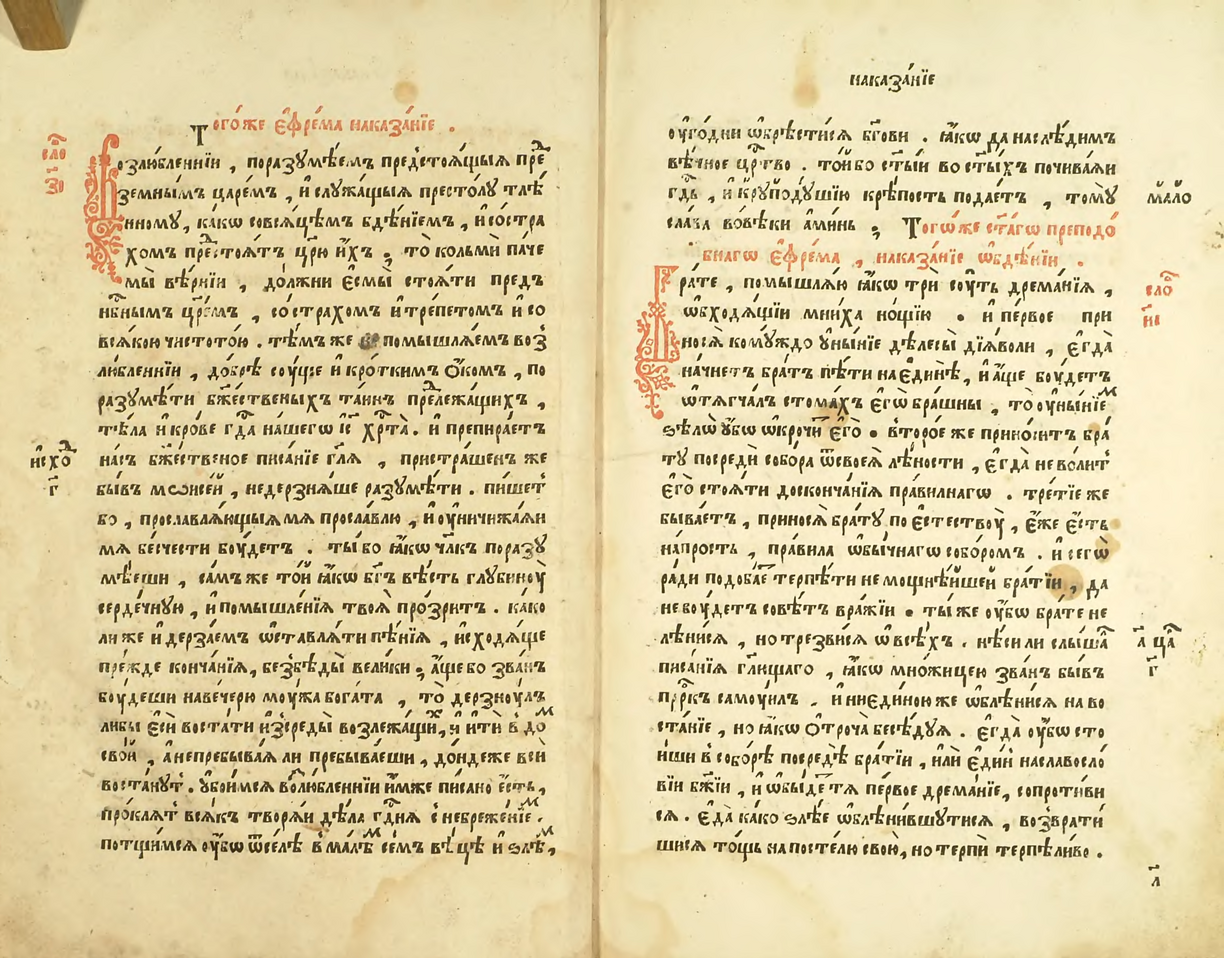 Тогоже є҆фре́ма наказа́нїе .
сло́
з҃і
Возлю́бленнїи , поразꙋмѣ́емъ предстоѧ́щыѧ пре
земны́мъ царе́мъ , и҆ слꙋжа́щыѧ престо́лꙋ тлѣ́
нномꙋ , ка́кѡ совсѧ́цѣмъ бдѣ́нїемъ , и҆ состра
хомъ престоѧ́тъ цр҃ю и҆́хъ ; то̀ кольмѝ паче
мы̀ вѣ́рнїи , до́лжни є҆смы̀ стоѧ́ти предъ
нбⷭ҇нымъ цр҃е́мъ , состра́хомъ и҆ тре́петомъ и҆ со
всѧ́кою чистото́ю . тѣ́мъ же помышлѧ́емъ воз
лю́бленнїи , до́брѣ соуще и҆ кро́ткимъ ѻ҆́комъ , по
разꙋмѣ́ти бж҃е́ственыхъ та́инъ прⷣележа́щихъ ,
тѣ́ла и҆ кро́ве гдⷭ҇а на́шегѡ і҆с҃ хрⷭ҇та̀ . и҆ препира́етъ
исхоⷣ
г҃
на́съ бж҃е́ственое писа́нїе гл҃ѧ , пристра́шенъ же
бы́въ мѡѷсе́й , недерзнѧ́ше разꙋмѣ́ти . пи́шет
бо , прославлѧ́ющыѧ мѧ просла́влю , и҆ оу҆ничижа́ѧи
мѧ бесче́сти боу́детъ . ты́ бо ꙗ҆́кѡ чл҃къ поразꙋ
мѣ́еши , са́мъ же то́й ꙗ҆́кѡ бг҃ъ вѣ́сть глꙋбиноу̀
серде́чнꙋю , и҆ помышле́нїѧ твоѧ̀ про́зритъ . ка́ко
ли же и҆ дерза́емъ ѡ҆ставлѧ́ти пѣ́нїѧ , и҆сходѧ́ще
пре́жде конча́нїѧ , безбѣды̀ вели́ки ; а҆́ще бо зва́нъ
боу́деши наве́черю моу́жа бога́та , то̀ дерзноу́лъ
либы є҆сѝ воста́ти и҆зсреды̀ возлежа́щиⷯ , и҆ итѝ в до́ⷨ
сво́й , а҆непребыва́ѧ ли пребыва́еши , до́ндеже всѝ
воста́нꙋт . ᲂу҆бои́мсѧ волю́бленнїи и҆́мже пи́сано є҆́сть ,
про́клѧт всѧ́къ творѧ́и дѣ́ла гдⷭ҇нѧ с небреже́нїеⷨ .
потщи́мсѧ оу҆́бѡ ѿсе́лѣ в ма́лѣⷨ семъ вѣ́цѣ и҆ ѕлѣ́ⷨ ,
наказа́нїе
оу҆го́дни ѡ҆брѣ́стисѧ бг҃ови . ꙗ҆́кѡ да наслѣ́димъ
вѣ́чное црⷭ҇тво . то́й бо ст҃ы́й во ст҃ы́хъ почива́ѧи
гдⷭ҇ь , и҆ кꙋ́пнодꙋ́шїю крѣ́пость подае́тъ , томꙋ̀
сла́ва во вѣ́ки а҆ми́нь ; Того́же ст҃а́гѡ преподо́
бнагѡ є҆фре́ма , наказа́нїе ѡ҆бдѣ́нїи .
сло́
и҃і
Бра́те , помышлѧ́ю ꙗ҆́кѡ трѝ соу́ть дрема́нїѧ ,
ѡ҆бходѧ́щїи мни́ха но́щїю . и҆ пе́рвое при
носѧ̀ комꙋ́ждо ᲂу҆ны́нїе дѣ́лесы дїѧ́воли , є҆гда̀
начне́тъ бра́тъ пѣ́ти наєди́нѣ , и҆ а҆́ще боу́детъ
ѡ҆тѧгча́лъ стома́хъ є҆гѡ̀ бра́шны , то оу҆ны́нїеⷨ
ѕѣлѡ̀ ᲂу҆́бѡ ѡ҆кро́чи є҆го̀ . второ́е же прино́ситъ бра́
тꙋ посредѝ собо́ра ѿсвоеѧ̀ лѣ́ности , є҆гда̀ неволи́т
є҆го̀ стоѧ́ти досконча́нїѧ пра́вилнагѡ . тре́тїе же
быва́етъ , приносѧ̀ бра́тꙋ по є҆стествоу̀ , є҆́же є҆́сть
на́прость , пра́вила ѡ҆бы́чнагѡ собо́ромъ . и҆ сегѡ̀
ра́ди подоба́еⷮ терпѣ́ти не мощнѣ́йшей бра́тїи , да
не боу́детъ совѣ́тъ вра́жїи . ты́ же оу҆́бѡ бра́те не
лѣни́сѧ , но трезви́сѧ ѡ҆ всѣ́хъ . нѣ́си ли слы́шаⷧ
а҃ цаⷭ҇
г҃
писа́нїѧ гл҃ющаго , ꙗ҆́кѡ мно́жицею зва́нъ бы́въ
прⷪ҇ркъ самоуи́лъ . и҆ ниеди́ною же ѡ҆блѣни́сѧ на во
ста́нїе , но ꙗ҆́кѡ ѻ҆троча̀ бесѣ́дꙋѧ . є҆гда̀ оу҆́бѡ сто
и́ши в собо́рѣ посредѣ̀ бра́тїи , и҆лѝ є҆ди́н наславосло́
вїи бж҃їи , и҆ ѡ҆бы́де тѧ пе́рвое дрема́нїе , сопроти́ви
сѧ . є҆да̀ ка́ко ѕлѣ̀ ѡ҆блѣни́вшꙋтисѧ , возврати́
шисѧ то́щь на посте́лю свою̀ , но терпѝ терпѣли́во .
л҃